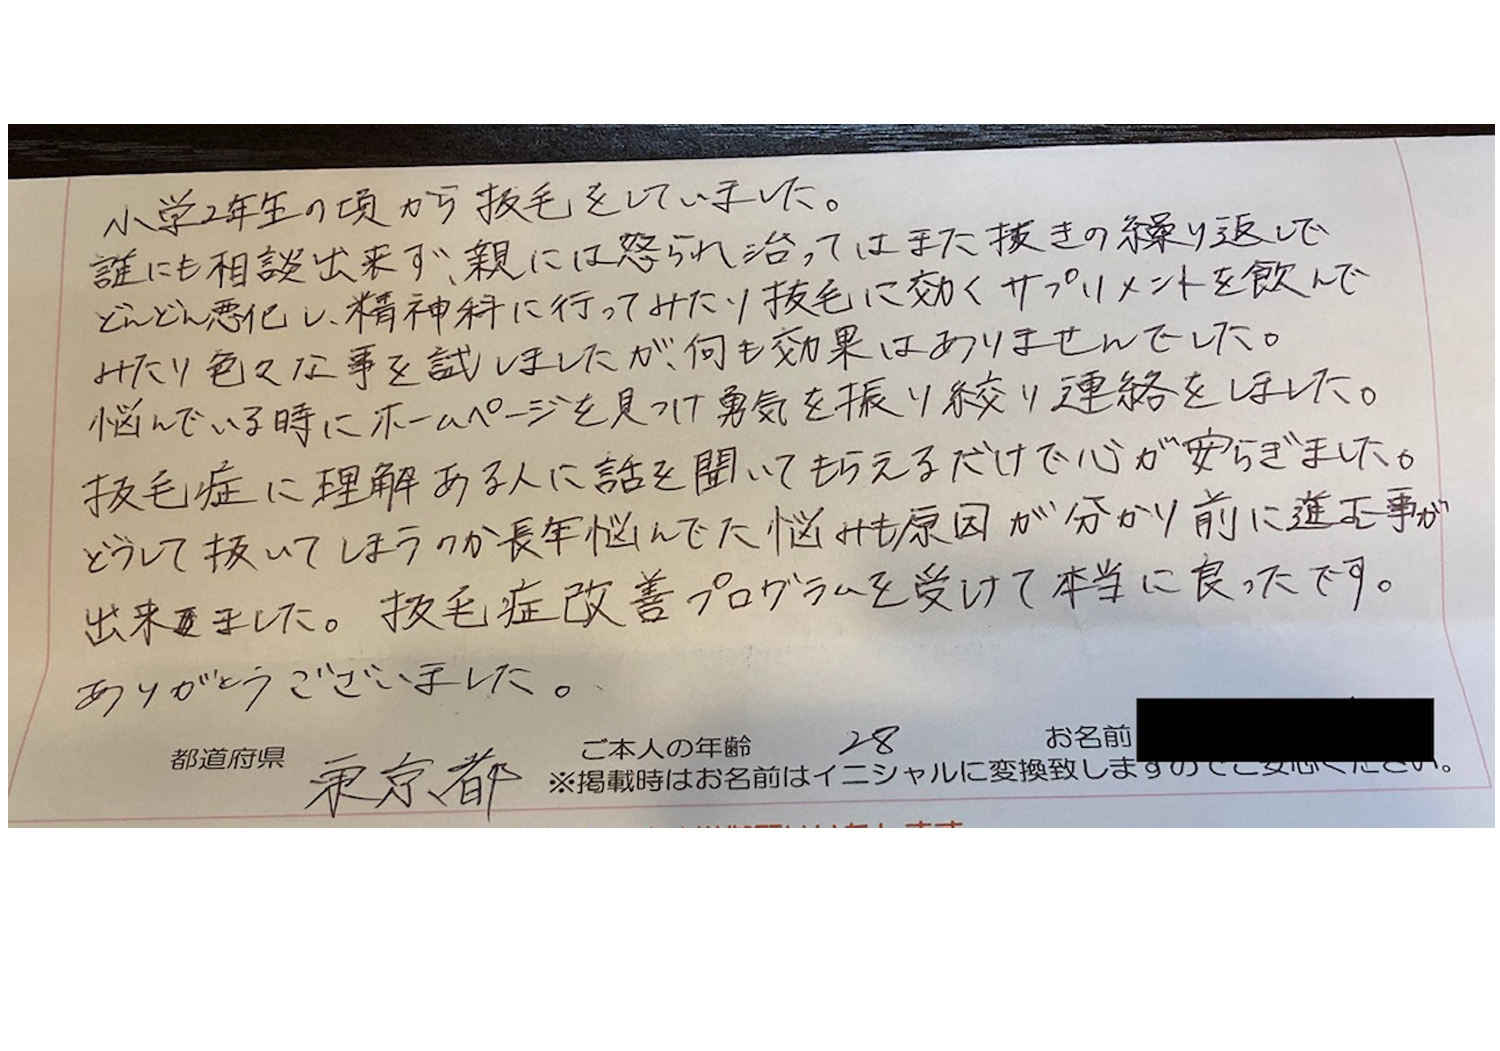 小学2年生の頃から抜毛をしていました。
誰にも相談出来ず、親には怒られ治ってはまた抜きの繰り返しで
どんどん悪化し、精神科に行ってみたり抜毛に効くサプリメントを飲んで
みたり色々な事を試しましたが、何も効果はありませんでした。
悩んでいる時にホームページを見つけ勇気を振り絞り連絡をしました。
抜毛症に理解ある人に話を聞いてもらえるだけで心が安らぎました。
どうして抜いてしまうのか長年悩んでた悩みも原因が分かり前に進む事が
出来ました。抜毛症改善プログラムを受けて本当に良ったです。
ありがとうございました。
都道府県 東京都 ご本人の年齢 28 お名前
※掲載時はお名前はイニシャルに変換致しますのでご安心ください。